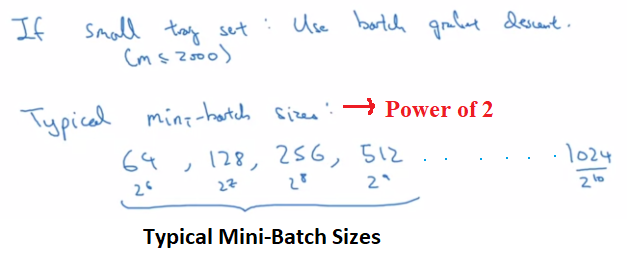 If small tray set : Use batch gradient descent.
(m ≤ 2000)
Typical mini-batch sizes: → Power of 2
64 , 128, 256, 512 . . . . . . 1024
2⁶ 2⁷ 2⁸ 2⁹ 2¹⁰
Typical Mini-Batch Sizes